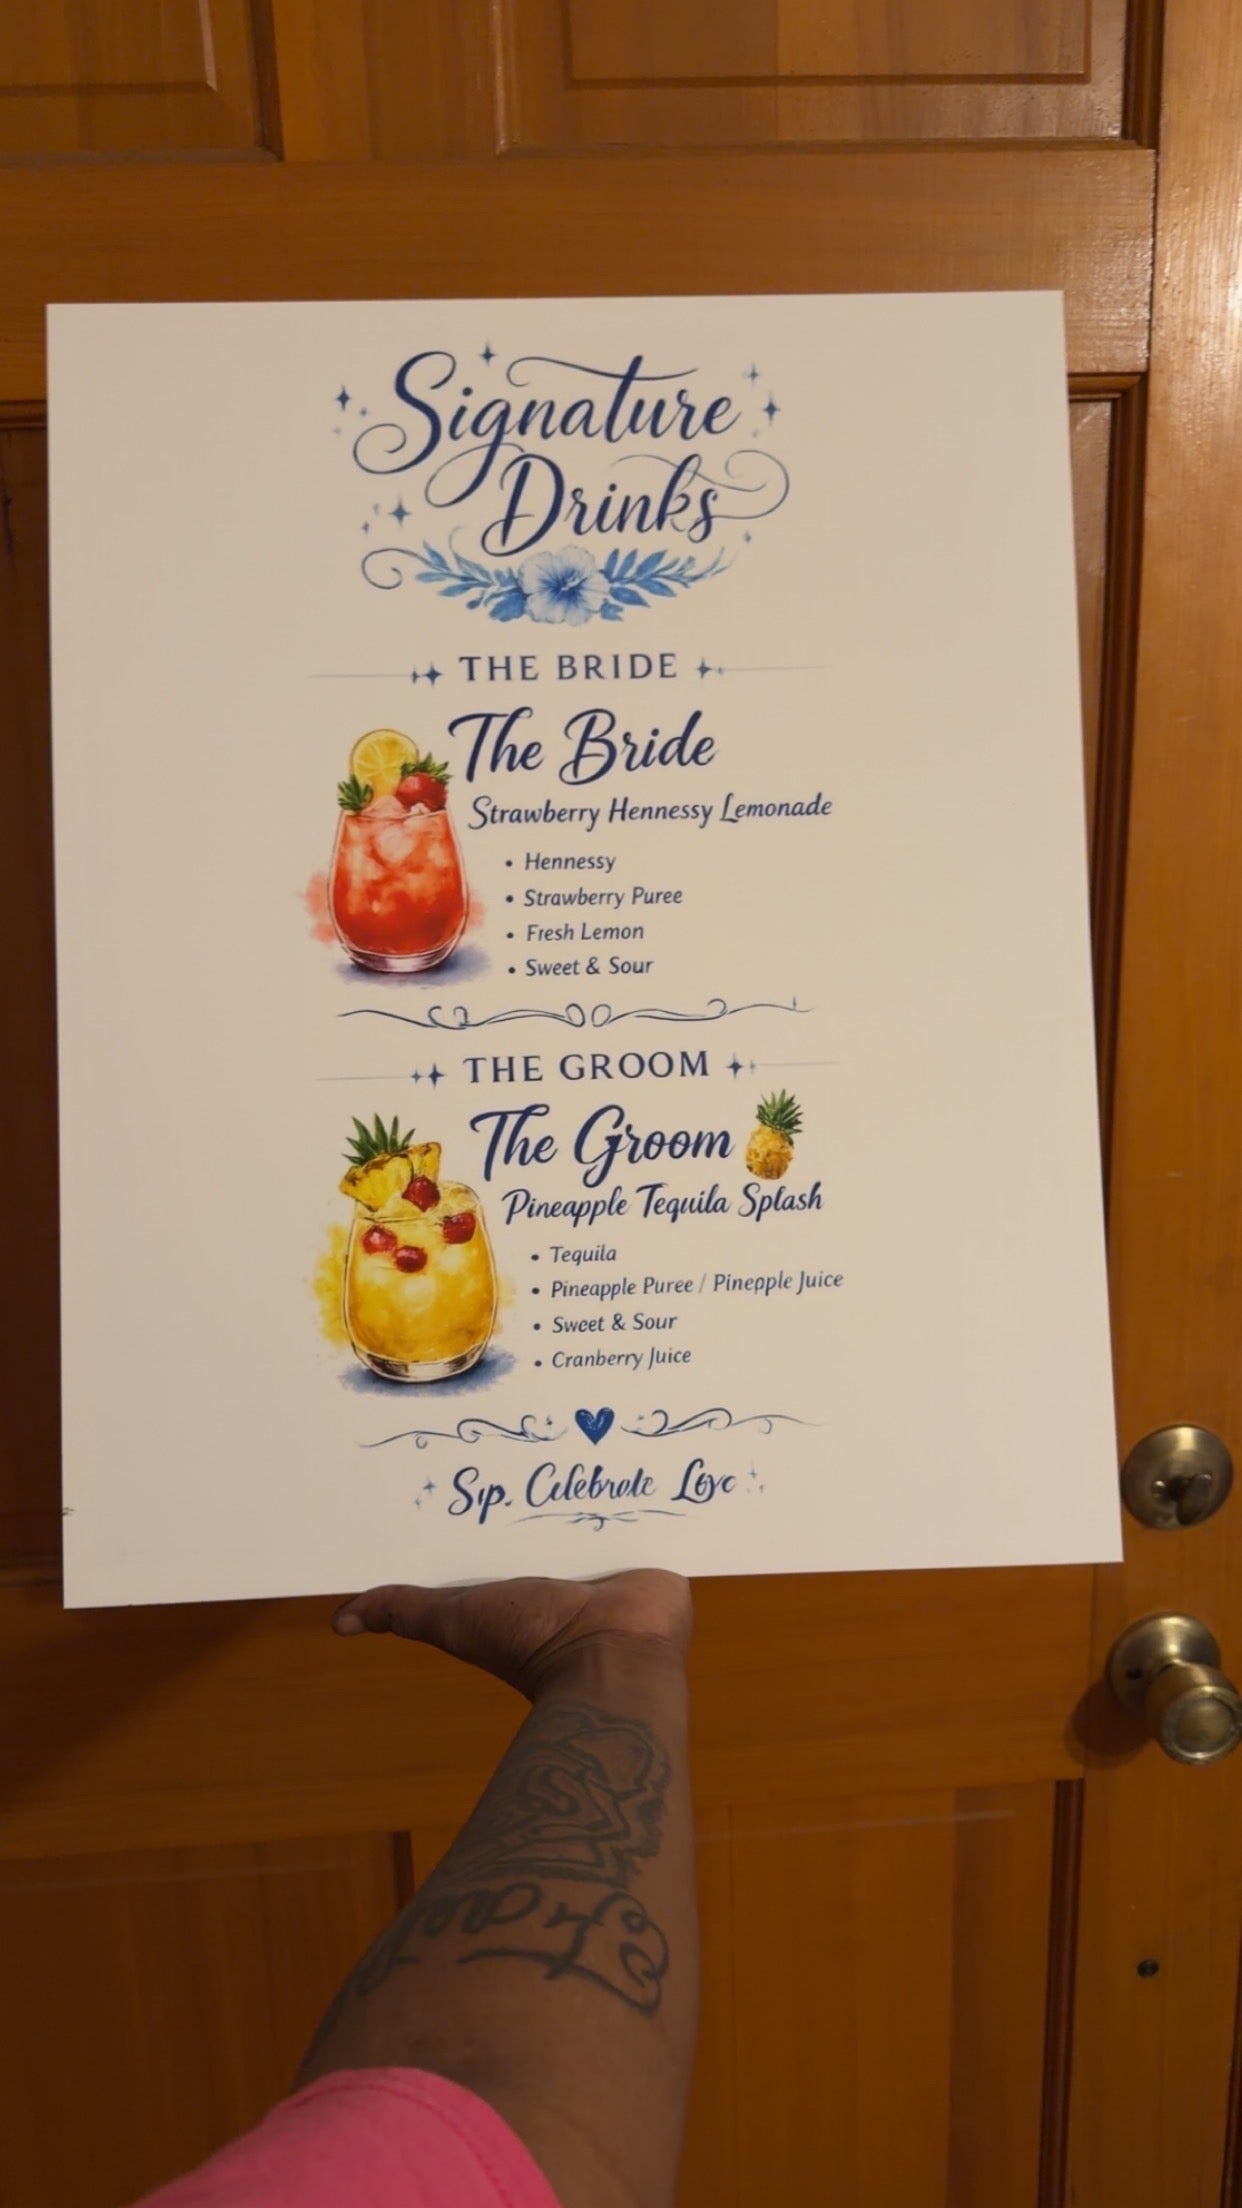 Signature
Drinks
THE BRIDE
The Bride
Strawberry Hennessy Lemonade
• Hennessy
• Strawberry Puree
• Fresh Lemon
• Sweet & Sour
THE GROOM
The Groom
Pineapple Tequila Splash
• Tequila
• Pineapple Puree / Pinepple Juice
• Sweet & Sour
• Cranberry Juice
Sip. Celebrate Love